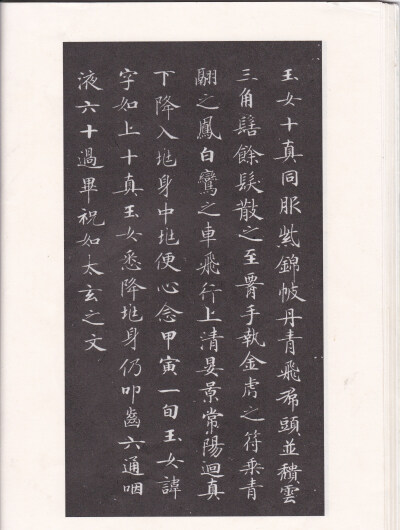 玉女十真同服紫錦帔丹青飛帬頭並穨雲
三角髻餘髮散之至腰手執金虎之符乗青
翮之鳳白鸞之車飛行上清晏景常陽迴真
下降入兆身中兆便心念甲寅一旬玉女諱
字如上十真玉女悉降兆身仍叩齒六通咽
液六十過畢祝如太玄之文